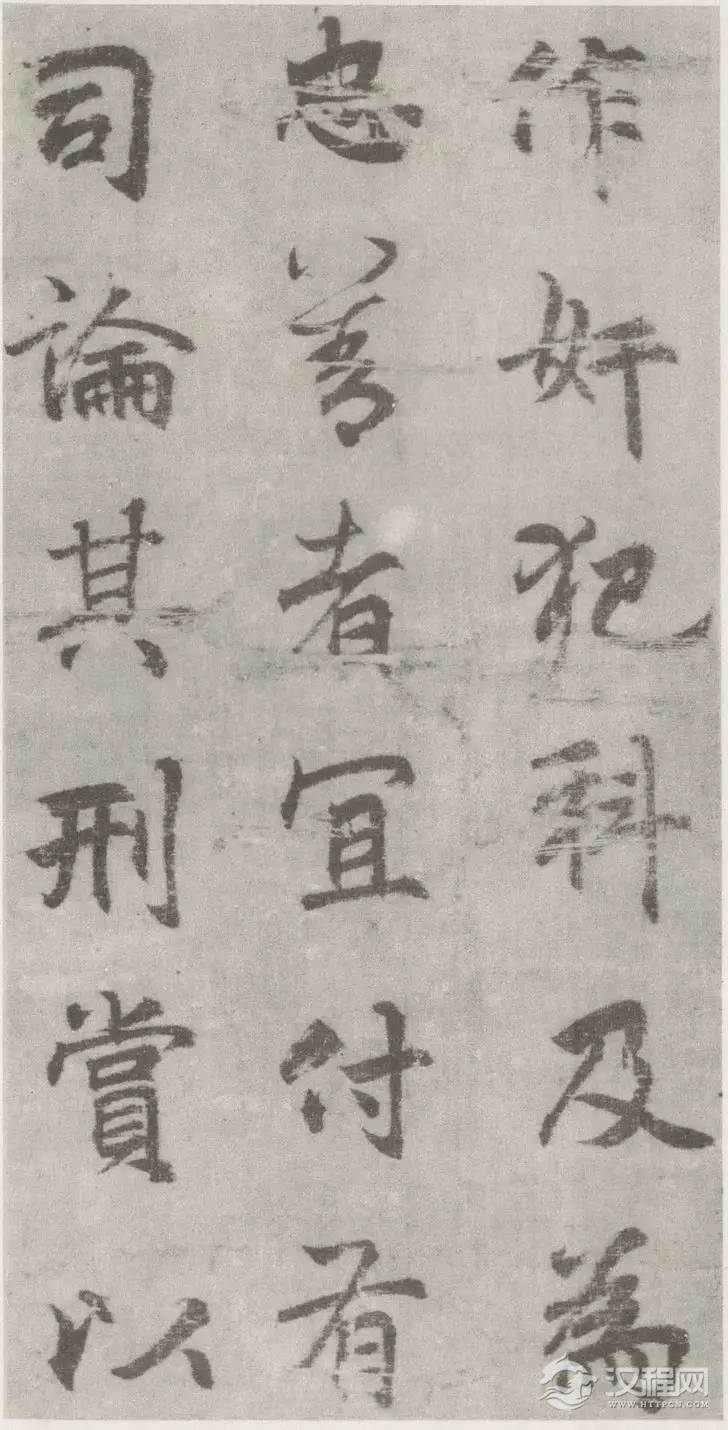 作奸犯科及為
忠善者宜付有
司論其刑賞以
汉程网
WWW.HTTPCN.COM